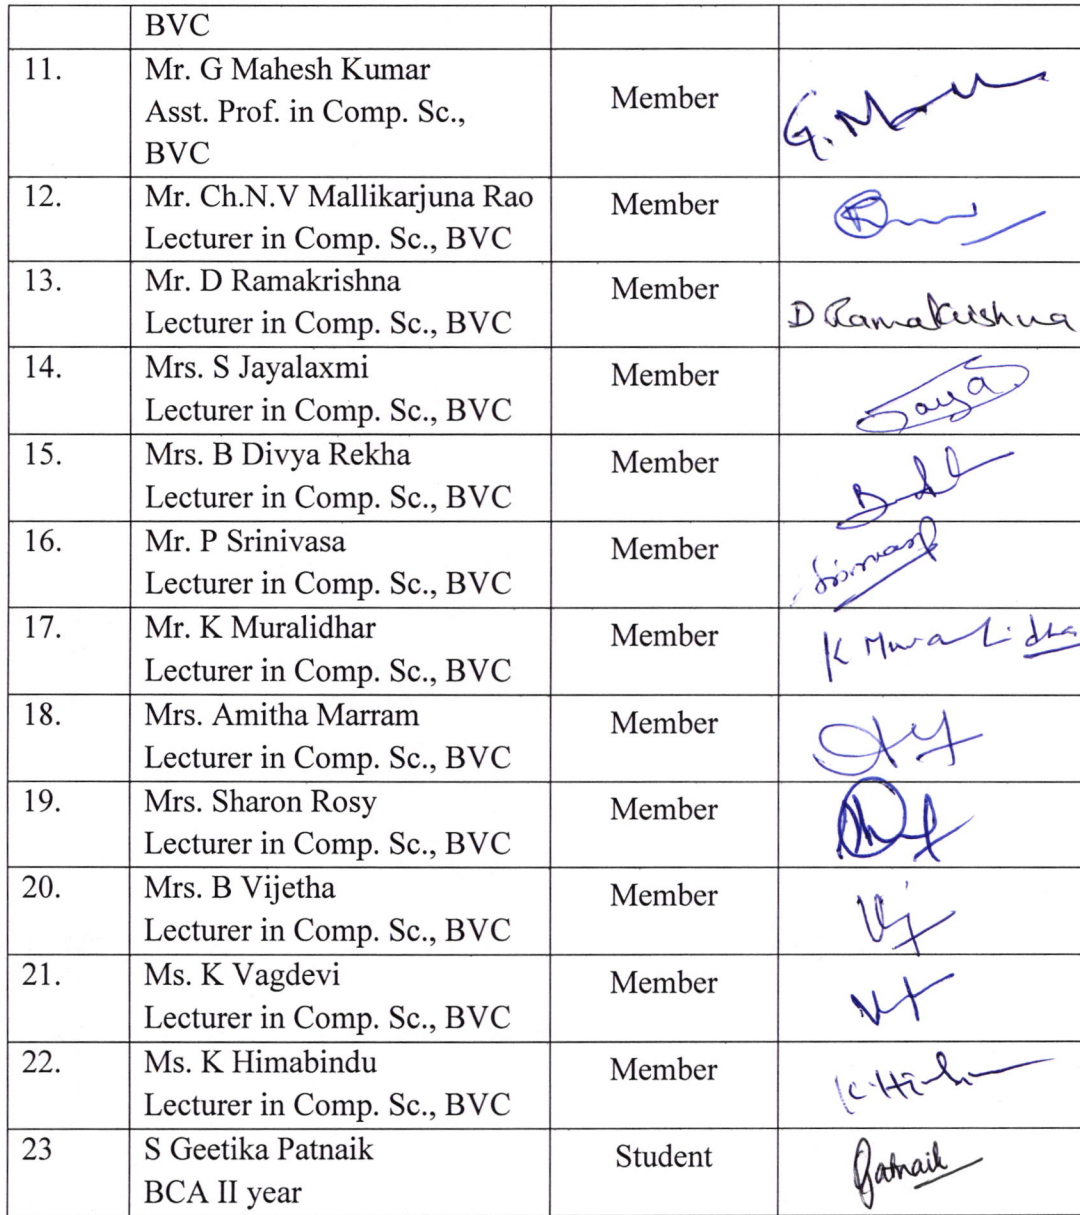 BVC
11.
Mr. G Mahesh Kumar
Asst. Prof. in Comp. Sc.,
BVC
Member
G. M
12.
Mr. Ch.N.V Mallikarjuna Rao
Lecturer in Comp. Sc., BVC
Member
13.
Mr. D Ramakrishna
Lecturer in Comp. Sc., BVC
Member
D Ramakrishna
14.
Mrs. S Jayalaxmi
Lecturer in Comp. Sc., BVC
Member
Jaya
15.
Mrs. B Divya Rekha
Lecturer in Comp. Sc., BVC
Member
16.
Mr. P Srinivasa
Lecturer in Comp. Sc., BVC
Member
17.
Mr. K Muralidhar
Lecturer in Comp. Sc., BVC
Member
K Muralidha
18.
Mrs. Amitha Marram
Lecturer in Comp. Sc., BVC
Member
19.
Mrs. Sharon Rosy
Lecturer in Comp. Sc., BVC
Member
20.
Mrs. B Vijetha
Lecturer in Comp. Sc., BVC
Member
Vj
21.
Ms. K Vagdevi
Lecturer in Comp. Sc., BVC
Member
22.
Ms. K Himabindu
Lecturer in Comp. Sc., BVC
Member
23
S Geetika Patnaik
BCA II year
Student
Patnaik